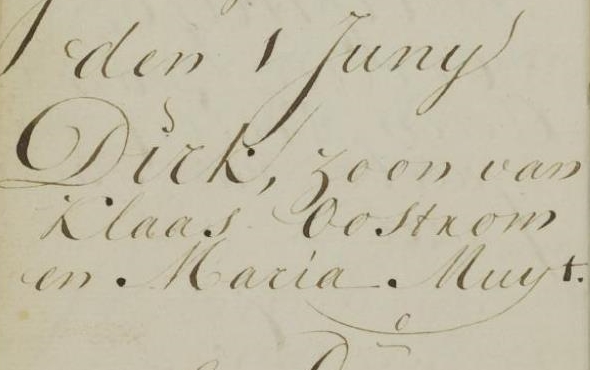 den 1 Juny
Dirk, zoon van
Klaas Oostrom
en Maria Muyt.